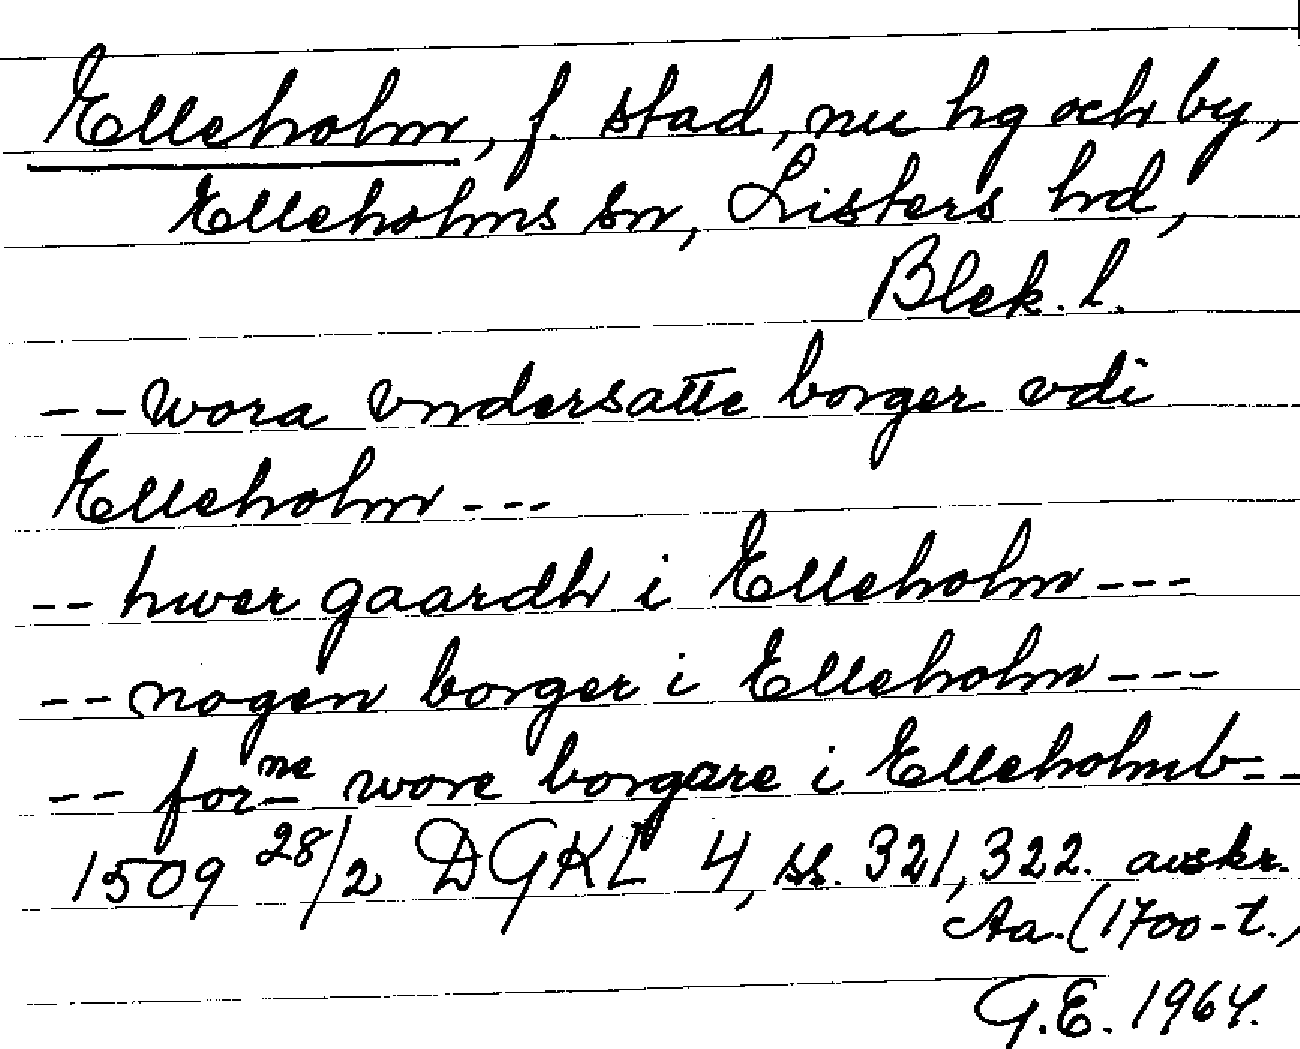 Elleholm, f. stad, nu hg och by,
Elleholms sn, Listers hd,
Blek. l.
-- wora vndersatte borger vdi
Elleholm ---
-- hwer gaardh i Elleholm ---
-- nogen borger i Elleholm ---
-- forne wore borgare i Elleholmb--
1509 28/2 DGKL 4, ss. 321, 322. avskr.
Aa. (1700-t.)
G.E. 1964.